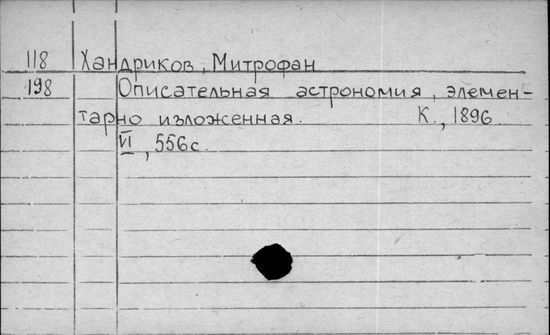 118 Хандриков, Митрофан
198 Описательная астрономия, элемен-
тарно изложенная. К., 1896
VI, 556с.